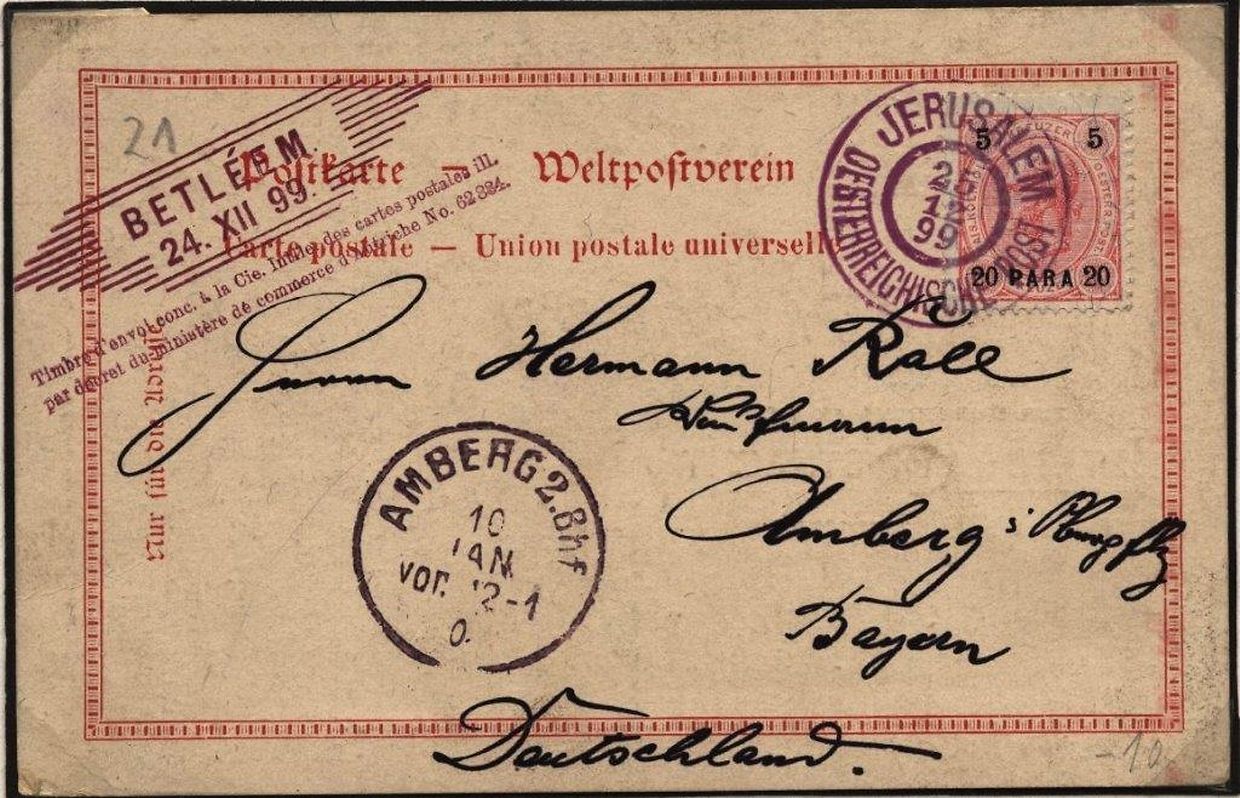 21
BETLÉEM
24. XII 99.
Timbre d'envoi conc. à la Cie. Intne. des cartes postales ill.
par décret du ministère de commerce d'Autriche No. 62384.
Postkarte — Weltpostverein
Carte postale — Union postale universelle
Nur für die Adresse
JERUSALEM
12
99
OESTERREICHISCHE POST
5 5
20 PARA 20
Herrn Hermann Rall
Kaufmann
Amberg i/ Oberpflz
Bayern
Deutschland.
AMBERG 2. Bhf
10
JAN
vor. 12-1
0.
-10